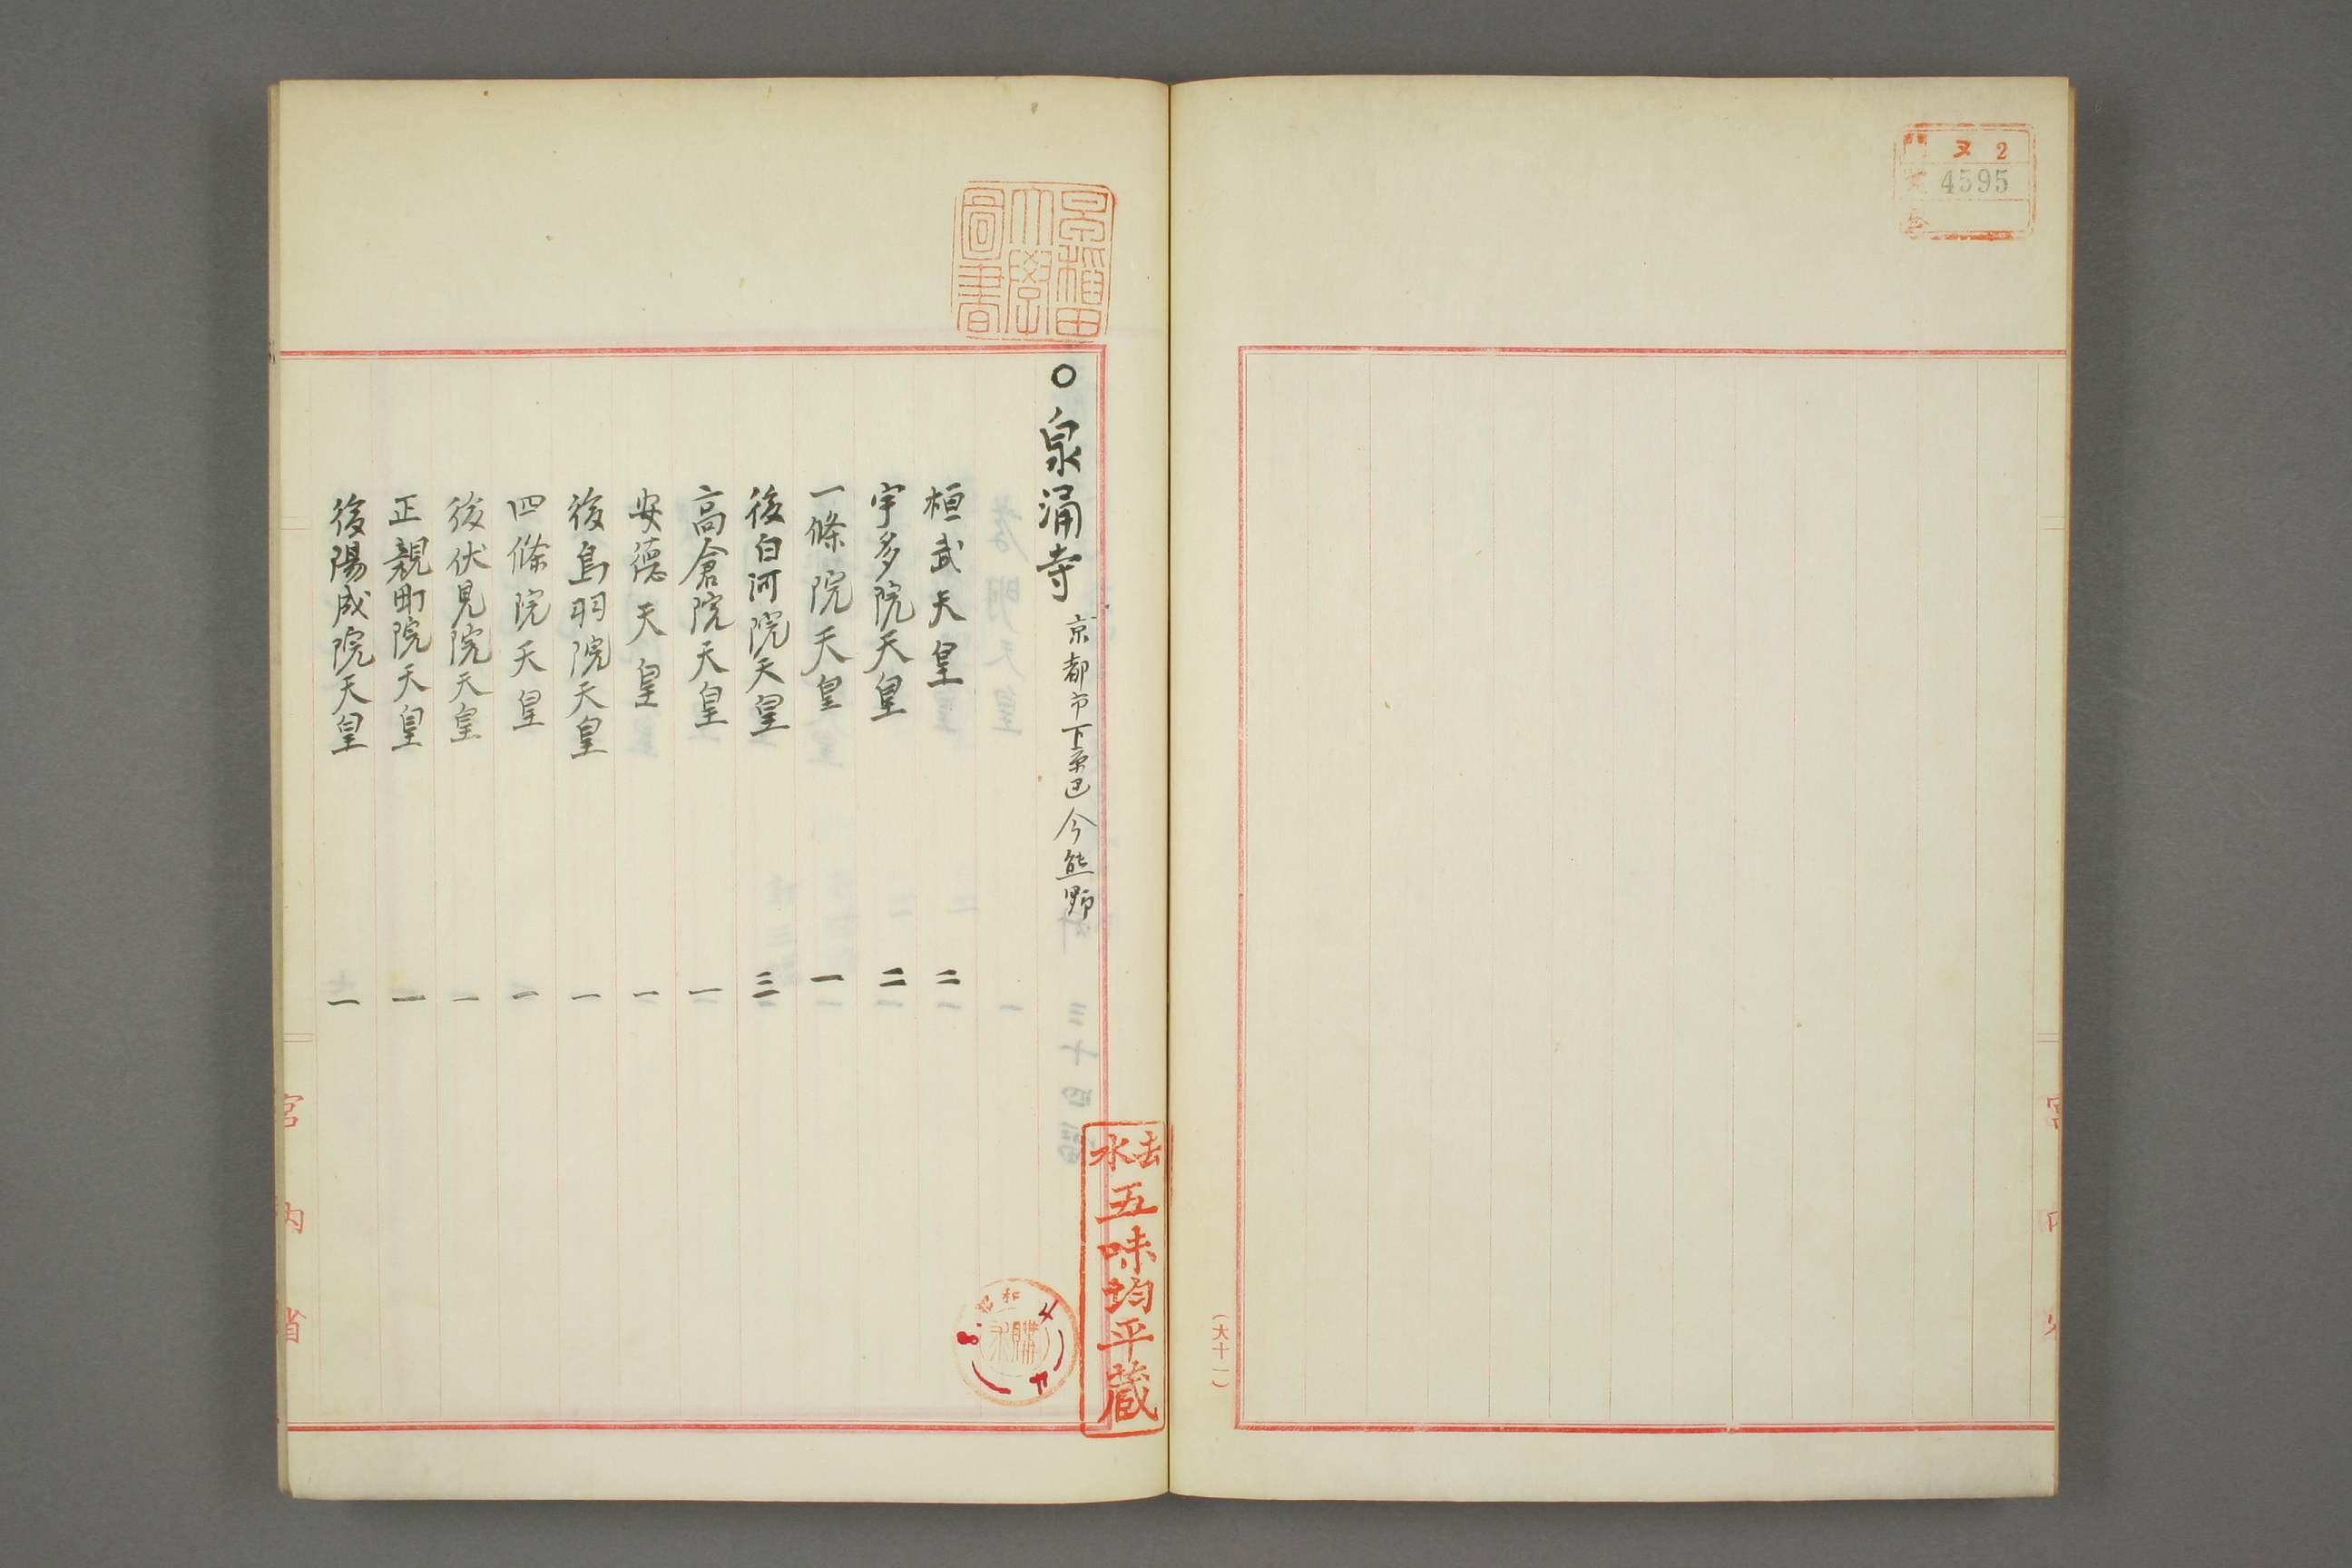 門 ヌ 2
號 4595
巻
宮内省
(大十一)
早稲田
大學
圖書
○泉涌寺 京都市下京区今熊野
桓武天皇 二
宇多院天皇 二
一條院天皇 一
後白河院天皇 三
高倉院天皇 一
安德天皇 一
後鳥羽院天皇 一
四條院天皇 一
後伏見院天皇 一
正親町院天皇 一
後陽成院天皇 一
五味均平蔵
昭和
購
宮内省